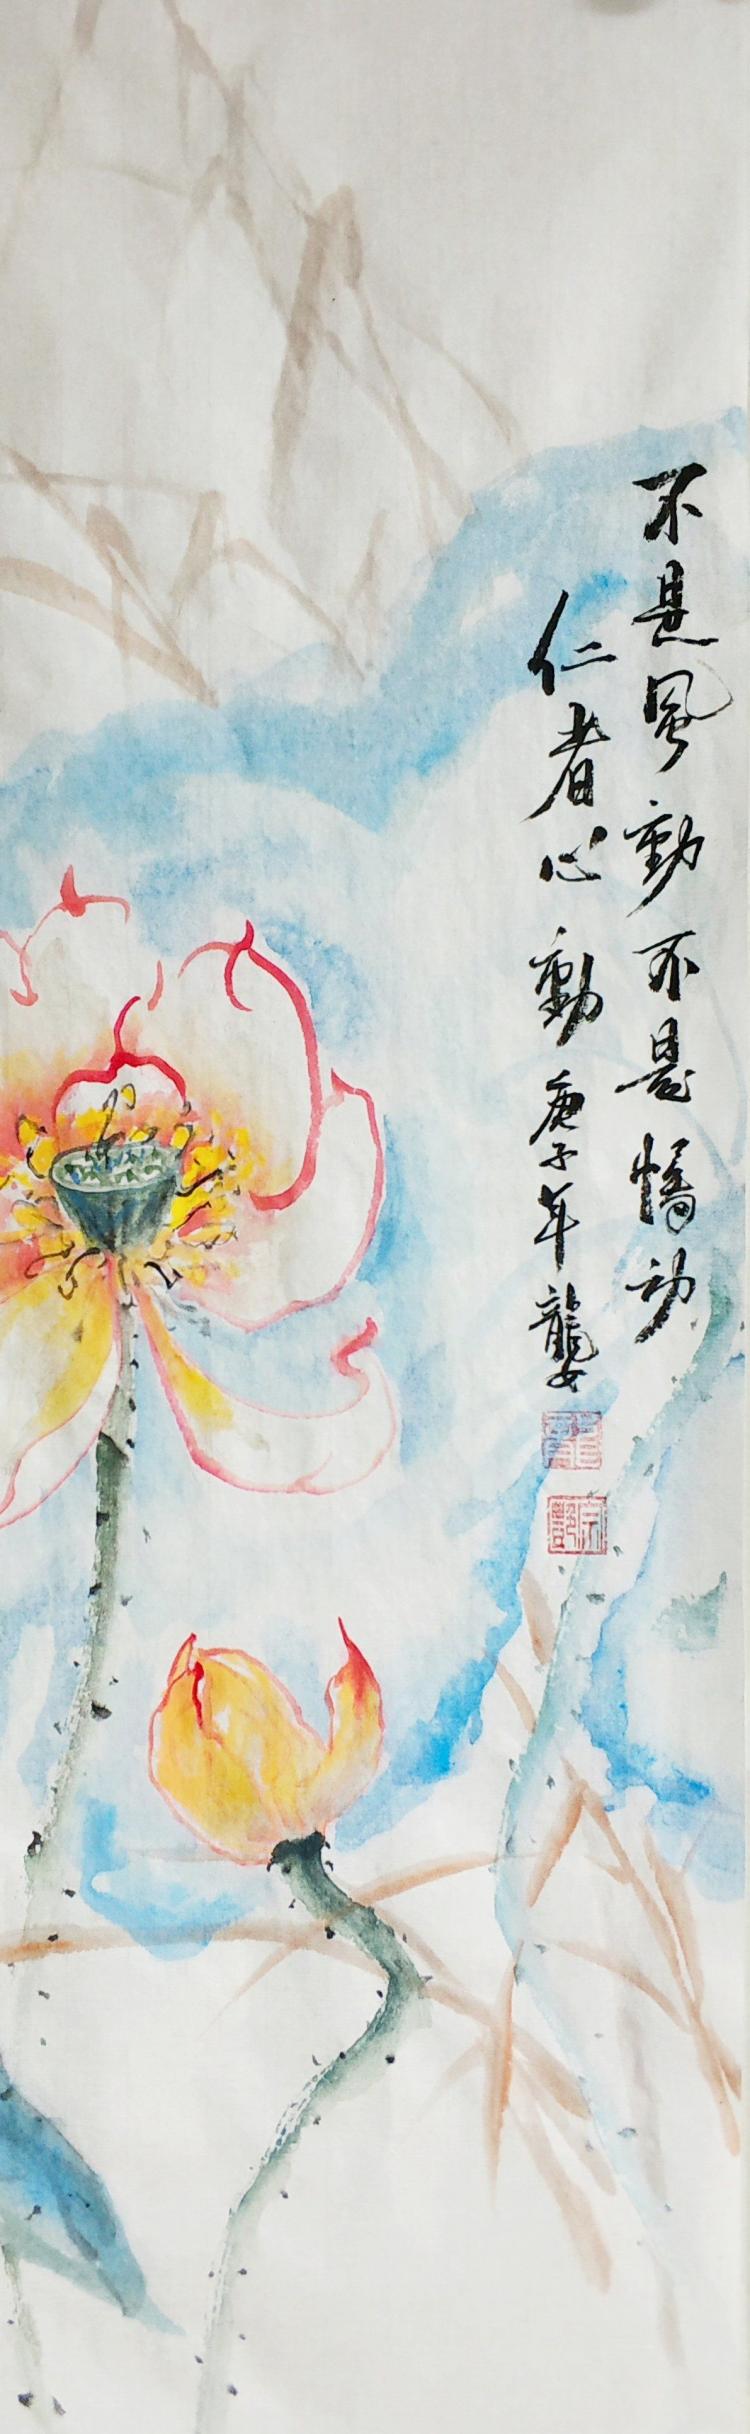 不是風動不是幡动
仁者心動 庚子年 龍女